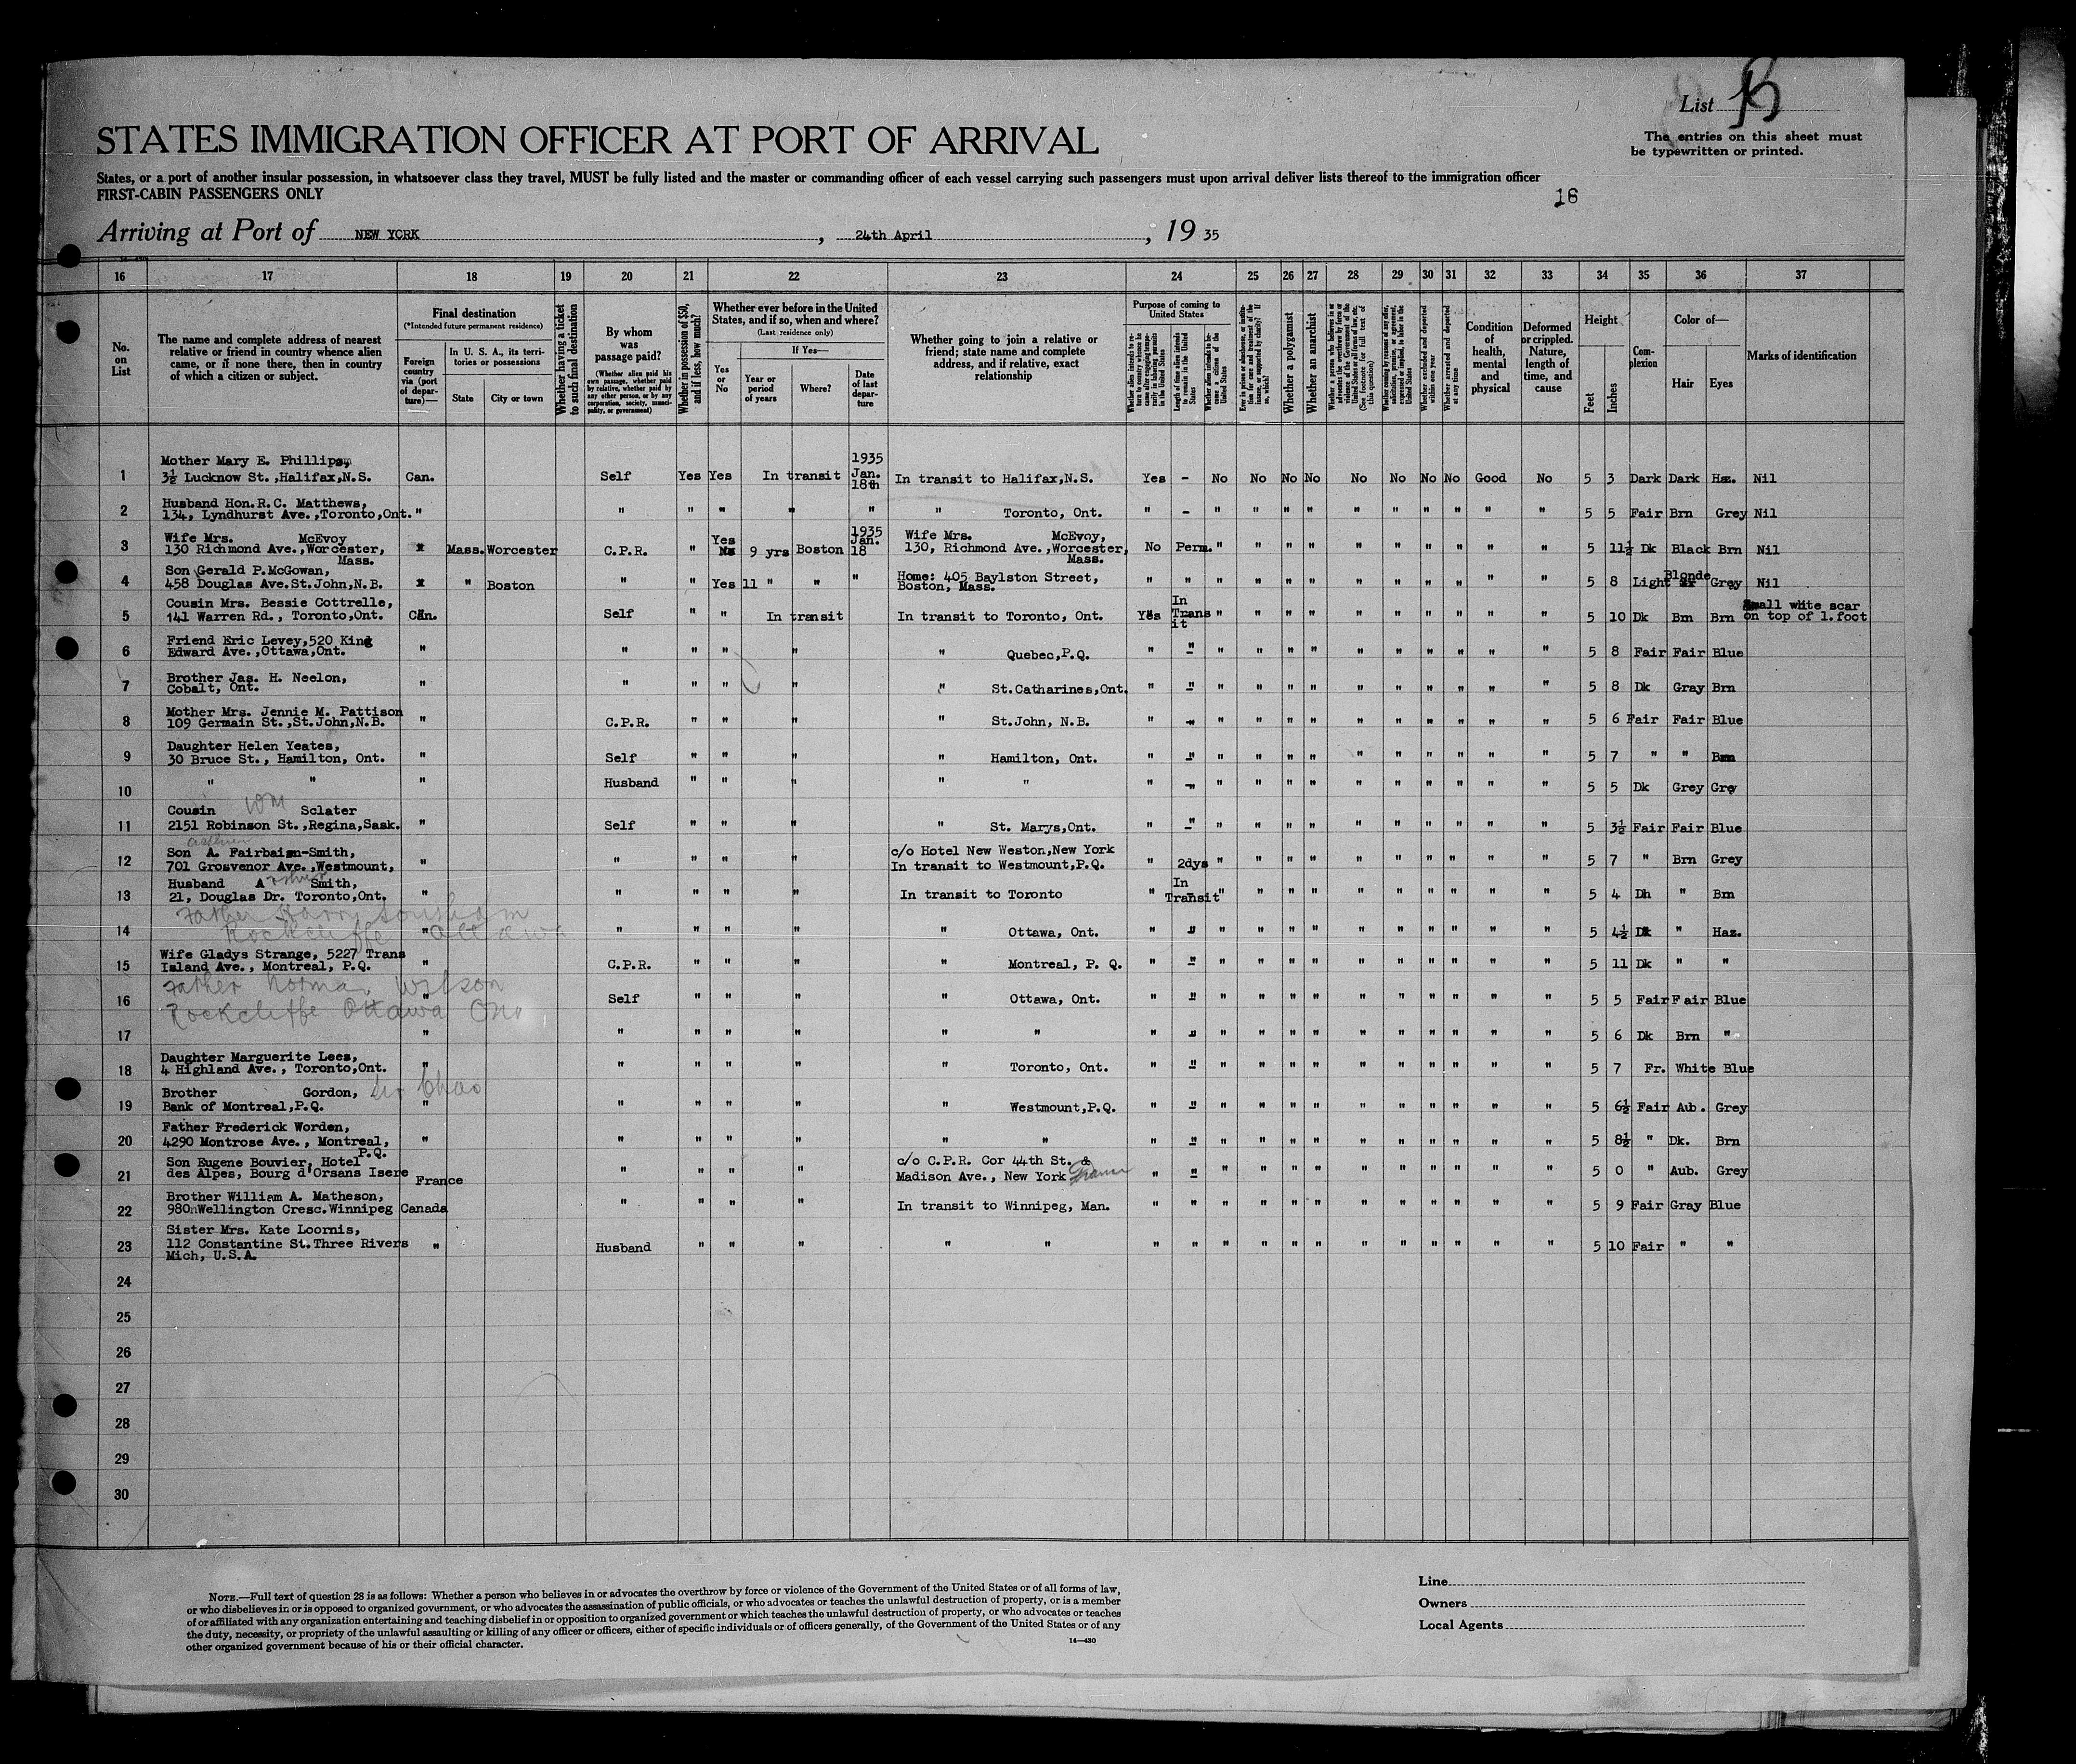 List
The entries on this sheet must
be typewritten or printed.
STATES IMMIGRATION OFFICER AT PORT OF ARRIVAL
States, or a port of another insular possession, in whatsoever class they travel, MUST be fully listed and the master or commanding officer of each vessel carrying such passengers must upon arrival deliver lists thereof to the immigration officer
FIRST-CABIN PASSENGERS ONLY
16
Arriving at Port of NEW YORK, 24th April, 19 35
16 17 18 19 20 21 22 23 24 25 26 27 28 29 30 31 32 33 34 35 36 37
No. on List
The name and complete address of nearest relative or friend in country whence alien came, or if none there, then in country of which a citizen or subject.
Final destination
(*Intended future permanent residence)
Foreign country via (port of departure)—
In U. S. A., its territories or possessions
State
City or town
Whether having a ticket to such final destination
By whom was passage paid?
(Whether alien paid his own passage, whether paid by relative, whether paid by any other person, or by any corporation, society, municipality, or government)
Whether in possession of $50, and if less, how much?
Whether ever before in the United States, and if so, when and where?
(Last residence only)
Yes or No
If Yes—
Year or period of years
Where?
Date of last departure
Whether going to join a relative or friend; state name and complete address, and if relative, exact relationship
Purpose of coming to United States
Whether a polygamist
Whether an anarchist
Condition of health, mental and physical
Deformed or crippled. Nature, length of time, and cause
Height
Feet
Inches
Complexion
Color of—
Hair
Eyes
Marks of identification
1 Mother Mary E. Phillips, 3½ Lucknow St.,Halifax,N.S. Can. Self Yes Yes In transit 1935 Jan. 18th In transit to Halifax,N.S. Yes - No No No No No No No No Good No 5 3 Dark Dark Haz. Nil
2 Husband Hon.R.C. Matthews, 134, Lyndhurst Ave.,Toronto,Ont. " " " " " " " Toronto, Ont. " - " " " " " " " " " " 5 5 Fair Brn Grey Nil
3 Wife Mrs. McEvoy 130 Richmond Ave.,Worcester, Mass. Mass. Worcester C.P.R. " Yes 9 yrs Boston 1935 Jan. 18 Wife Mrs. McEvoy, 130, Richmond Ave.,Worcester, Mass. No Perm. " " " " " " " " " " 5 11½ Dk Black Brn Nil
4 Son Gerald P.McGowan, 458 Douglas Ave.St.John,N.B. " Boston " " Yes 11 " " " Home: 405 Baylston Street, Boston, Mass. " " " " " " " " " " " " 5 8 Light Blonde Grey Nil
5 Cousin Mrs. Bessie Cottrelle, 141 Warren Rd., Toronto,Ont. Can. Self " " In transit In transit to Toronto, Ont. Yes In Transit " " " " " " " " " " 5 10 Dk Brn Brn Small white scar on top of l.foot
6 Friend Eric Levey,520 King Edward Ave.,Ottawa,Ont. " " " " " " Quebec,P.Q. " " " " " " " " " " " " 5 8 Fair Fair Blue
7 Brother Jas. H. Neelon, Cobalt, Ont. " " " " " " St.Catharines,Ont. " " " " " " " " " " " " 5 8 Dk Gray Brn
8 Mother Mrs. Jennie M. Pattison 109 Germain St.,St.John,N.B. " C.P.R. " " " " St.John, N.B. " " " " " " " " " " " " 5 6 Fair Fair Blue
9 Daughter Helen Yeates, 30 Bruce St., Hamilton, Ont. " Self " " " " Hamilton, Ont. " " " " " " " " " " " " 5 7 " " Brn
10 " " " Husband " " " " " " " " " " " " " " " " " " 5 5 Dk Grey Gre
11 Cousin Wm Sclater 2151 Robinson St.,Regina,Sask. " Self " " " " St. Marys,Ont. " " " " " " " " " " " " 5 3½ Fair Fair Blue
12 Son A. Fairbairn-Smith, 701 Grosvenor Ave.,Westmount, " " " " " c/o Hotel New Weston,New York In transit to Westmount,P.Q. " 2dys " " " " " " " " " " 5 7 " Brn Grey
13 Husband Arthur Smith, 21, Douglas Dr. Toronto,Ont. " " " " " In transit to Toronto " In Transit " " " " " " " " " " 5 4 Dh " Brn
14 Father Harry Southam Rockcliffe Ottawa " " " " " " Ottawa, Ont. " " " " " " " " " " " " 5 4½ Dk " Haz.
15 Wife Gladys Strange, 5227 Trans Island Ave., Montreal, P.Q. " C.P.R. " " " " Montreal, P. Q. " " " " " " " " " " " " 5 11 Dk " "
16 Father Norman Wilson Rockcliffe Ottawa Ont " Self " " " " Ottawa, Ont. " " " " " " " " " " " " 5 5 Fair Fair Blue
17 " " " " " " " " " " " " " " " " " " " 5 6 Dk Brn "
18 Daughter Marguerite Lees, 4 Highland Ave., Toronto,Ont. " " " " " " Toronto, Ont. " " " " " " " " " " " " 5 7 Fr. White Blue
19 Brother Gordon, Bank of Montreal,P.Q. " " " " " " Westmount,P.Q. " " " " " " " " " " " " 5 6½ Fair Aub. Grey
20 Father Frederick Worden, 4290 Montrose Ave., Montreal, P.Q. " " " " " " " " " " " " " " " " " " " 5 8½ " Dk. Brn
21 Son Eugene Bouvier, Hotel des Alpes, Bourg d'Orsans Isere France " " " " c/o C.P.R. Cor 44th St. & Madison Ave., New York " " " " " " " " " " " " 5 0 " Aub. Grey
22 Brother William A. Matheson, 980 Wellington Cresc.Winnipeg Canada " " " " In transit to Winnipeg, Man. " " " " " " " " " " " " 5 9 Fair Gray Blue
23 Sister Mrs. Kate Loornis, 112 Constantine St.Three Rivers Mich, U.S.A. " Husband " " " " " " " " " " " " " " " " " " 5 10 Fair " "
24
25
26
27
28
29
30
NOTE.—Full text of question 28 is as follows: Whether a person who believes in or advocates the overthrow by force or violence of the Government of the United States or of all forms of law,
or who disbelieves in or is opposed to organized government, or who advocates the assassination of public officials, or who advocates or teaches the unlawful destruction of property, or is a member
of or affiliated with any organization entertaining and teaching disbelief in or opposition to organized government or which teaches the unlawful destruction of property, or who advocates or teaches
the duty, necessity, or propriety of the unlawful assaulting or killing of any officer or officers, either of specific individuals or of officers generally, of the Government of the United States or of any
other organized government because of his or their official character.
14—430
Line
Owners
Local Agents